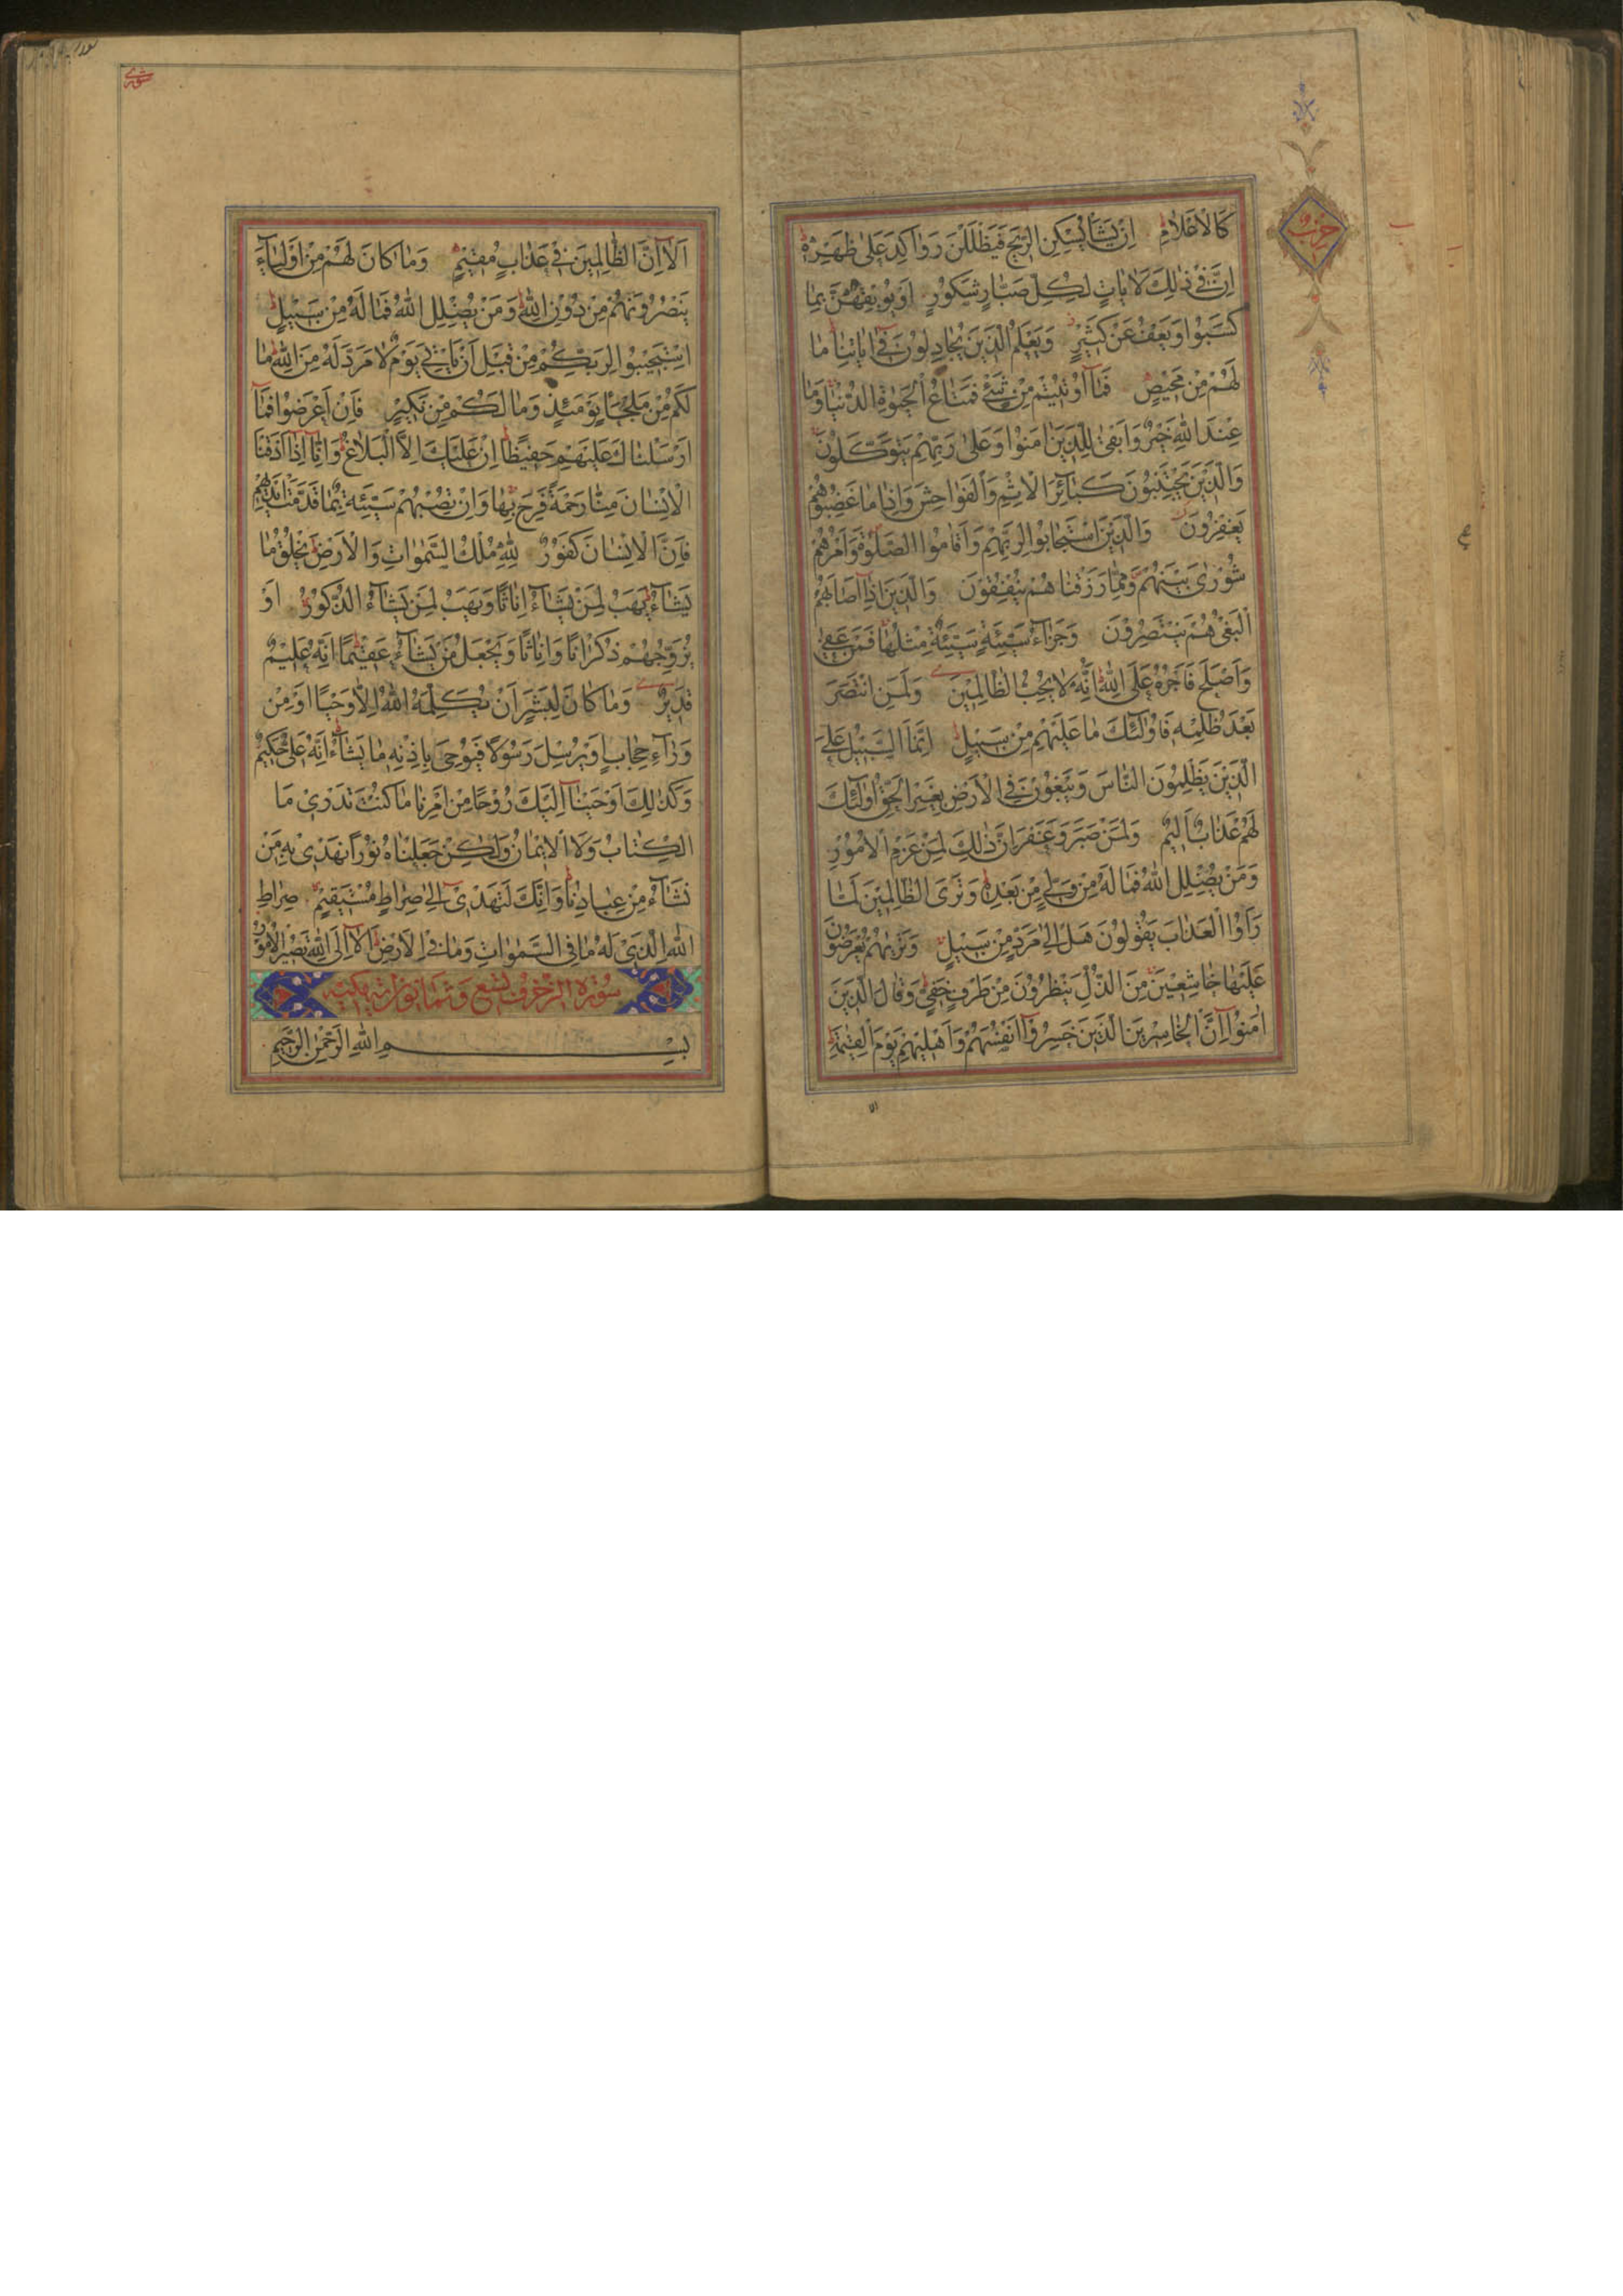 حزب
كَالْاَعْلَامِ اِنْ يَشَأْ يُسْكِنِ الرّٖيحَ فَيَظْلَلْنَ رَوَاكِدَ عَلٰى ظَهْرِهٖ
اِنَّ فٖي ذٰلِكَ لَاٰيَاتٍ لِكُلِّ صَبَّارٍ شَكُورٍ اَوْ يُوبِقْهُنَّ بِمَا
كَسَبُوا وَيَعْفُ عَنْ كَثٖيرٍ وَيَعْلَمَ الَّذٖينَ يُجَادِلُونَ فٖي اٰيَاتِنَا مَا
لَهُمْ مِنْ مَحٖيصٍ فَمَا اُوتٖيتُمْ مِنْ شَيْءٍ فَمَتَاعُ الْحَيٰوةِ الدُّنْيَا وَمَا
عِنْدَ اللّٰهِ خَيْرٌ وَاَبْقٰى لِلَّذٖينَ اٰمَنُوا وَعَلٰى رَبِّهِمْ يَتَوَكَّلُونَ
وَالَّذٖينَ يَجْتَنِبُونَ كَبَائِرَ الْاِثْمِ وَالْفَوَاحِشَ وَاِذَا مَا غَضِبُوا هُمْ
يَغْفِرُونَ وَالَّذٖينَ اسْتَجَابُوا لِرَبِّهِمْ وَاَقَامُوا الصَّلٰوةَ وَاَمْرُهُمْ
شُورٰى بَيْنَهُمْ وَمِمَّا رَزَقْنَاهُمْ يُنْفِقُونَ وَالَّذٖينَ اِذَا اَصَابَهُمُ
الْبَغْيُ هُمْ يَنْتَصِرُونَ وَجَزَاءُ سَيِّئَةٍ سَيِّئَةٌ مِثْلُهَا فَمَنْ عَفٰى
وَاَصْلَحَ فَاَجْرُهُ عَلَى اللّٰهِ اِنَّهُ لَا يُحِبُّ الظَّالِمٖينَ وَلَمَنِ انْتَصَرَ
بَعْدَ ظُلْمِهٖ فَاُولٰئِكَ مَا عَلَيْهِمْ مِنْ سَبٖيلٍ اِنَّمَا السَّبٖيلُ عَلَى
الَّذٖينَ يَظْلِمُونَ النَّاسَ وَيَبْغُونَ فِي الْاَرْضِ بِغَيْرِ الْحَقِّ اُولٰئِكَ
لَهُمْ عَذَابٌ اَلٖيمٌ وَلَمَنْ صَبَرَ وَغَفَرَ اِنَّ ذٰلِكَ لَمِنْ عَزْمِ الْاُمُورِ
وَمَنْ يُضْلِلِ اللّٰهُ فَمَا لَهُ مِنْ وَلِيٍّ مِنْ بَعْدِهٖ وَتَرَى الظَّالِمٖينَ لَمَّا
رَاَوُا الْعَذَابَ يَقُولُونَ هَلْ اِلٰى مَرَدٍّ مِنْ سَبٖيلٍ وَتَرٰيهُمْ يُعْرَضُونَ
عَلَيْهَا خَاشِعٖينَ مِنَ الذُّلِّ يَنْظُرُونَ مِنْ طَرْفٍ خَفِيٍّ وَقَالَ الَّذٖينَ
اٰمَنُوا اِنَّ الْخَاسِرٖينَ الَّذٖينَ خَسِرُوا اَنْفُسَهُمْ وَاَهْلٖيهِمْ يَوْمَ الْقِيٰمَةِ
الا
شورى
اَلَا اِنَّ الظَّالِمٖينَ فٖي عَذَابٍ مُقٖيمٍ وَمَا كَانَ لَهُمْ مِنْ اَوْلِيَاءَ
يَنْصُرُونَهُمْ مِنْ دُونِ اللّٰهِ وَمَنْ يُضْلِلِ اللّٰهُ فَمَا لَهُ مِنْ سَبٖيلٍ
اِسْتَجٖيبُوا لِرَبِّكُمْ مِنْ قَبْلِ اَنْ يَأْتِيَ يَوْمٌ لَا مَرَدَّ لَهُ مِنَ اللّٰهِ مَا
لَكُمْ مِنْ مَلْجَأٍ يَوْمَئِذٍ وَمَا لَكُمْ مِنْ نَكٖيرٍ فَاِنْ اَعْرَضُوا فَمَا
اَرْسَلْنَاكَ عَلَيْهِمْ حَفٖيظًا اِنْ عَلَيْكَ اِلَّا الْبَلَاغُ وَاِنَّا اِذَا اَذَقْنَا
الْاِنْسَانَ مِنَّا رَحْمَةً فَرِحَ بِهَا وَاِنْ تُصِبْهُمْ سَيِّئَةٌ بِمَا قَدَّمَتْ اَيْدٖيهِمْ
فَاِنَّ الْاِنْسَانَ كَفُورٌ لِلّٰهِ مُلْكُ السَّمٰوَاتِ وَالْاَرْضِ يَخْلُقُ مَا
يَشَاءُ يَهَبُ لِمَنْ يَشَاءُ اِنَاثًا وَيَهَبُ لِمَنْ يَشَاءُ الذُّكُورَ اَوْ
يُزَوِّجُهُمْ ذُكْرَانًا وَاِنَاثًا وَيَجْعَلُ مَنْ يَشَاءُ عَقٖيمًا اِنَّهُ عَلٖيمٌ
قَدٖيرٌ وَمَا كَانَ لِبَشَرٍ اَنْ يُكَلِّمَهُ اللّٰهُ اِلَّا وَحْيًا اَوْ مِنْ
وَرَاءِ حِجَابٍ اَوْ يُرْسِلَ رَسُولًا فَيُوحِيَ بِاِذْنِهٖ مَا يَشَاءُ اِنَّهُ عَلِيٌّ حَكٖيمٌ
وَكَذٰلِكَ اَوْحَيْنَا اِلَيْكَ رُوحًا مِنْ اَمْرِنَا مَا كُنْتَ تَدْرٖي مَا
الْكِتَابُ وَلَا الْاٖيمَانُ وَلٰكِنْ جَعَلْنَاهُ نُورًا نَهْدٖي بِهٖ مَنْ
نَشَاءُ مِنْ عِبَادِنَا وَاِنَّكَ لَتَهْدٖي اِلٰى صِرَاطٍ مُسْتَقٖيمٍ صِرَاطِ
اللّٰهِ الَّذٖي لَهُ مَا فِي السَّمٰوَاتِ وَمَا فِي الْاَرْضِ اَلَا اِلَى اللّٰهِ تَصٖيرُ الْاُمُورُ
سورة الزخرف تسع وثمانون اية مكية
بِسْمِ اللّٰهِ الرَّحْمٰنِ الرَّحٖيمِ